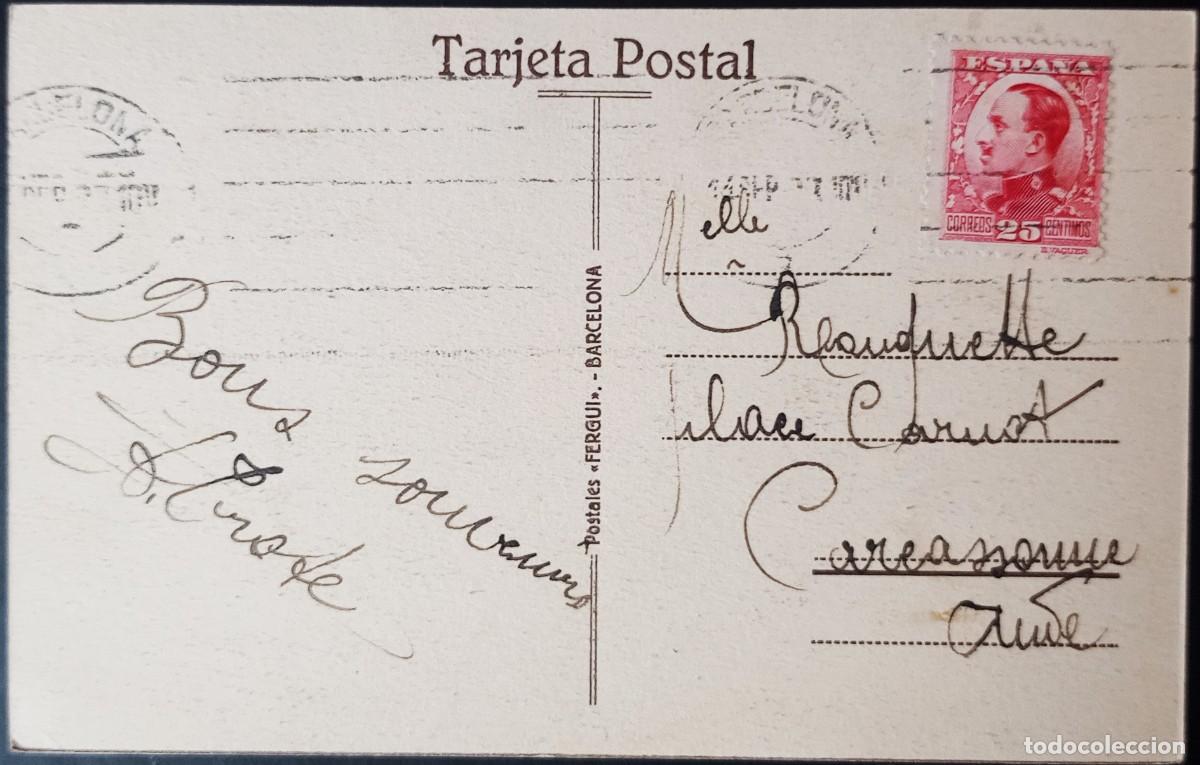 Tarjeta Postal
BARCELONA
BARCELONA
ESPAÑA
CORREOS 25 CENTIMOS
Melle
Place Carnot
Carcassonne
Aude
Bons
souvenirs
Postales «FERGUI». - BARCELONA
todocoleccion